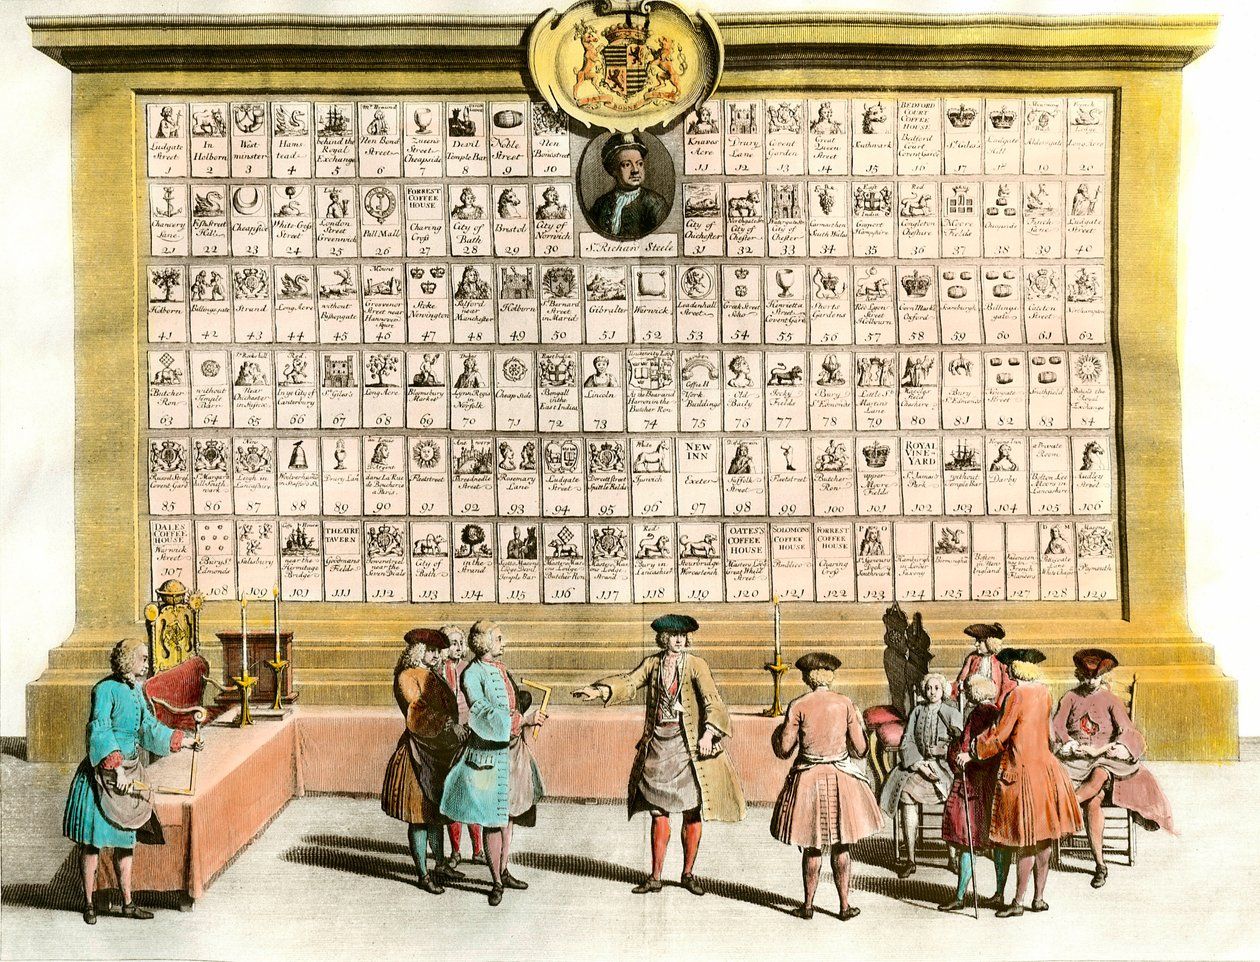 BONNE
Ludgate
Street
1
In
Holborn
2
West
minster
3
Hams
tead
4
behind the
Royal
Exchange
5
New Bond
Street
6
Queens
Street
Cheapside
7
Devil
Temple Bar
8
Noble
Street
9
New
Bond street
10
Knaves
Acre
11
Drury
Lane
12
Covent
Garden
13
Great
Queen
Street
14
Southwark
15
BEDFORD
COURT
COFFEE
HOUSE
Bedford
Court
Covent Garden
16
St. Giles's
17
Ludgate
Hill
18
Aldersgate
19
Long Acre
20
Chancery
Lane
21
Fish Street
Hill
22
Cheapside
23
White Cross
Street
24
London
Street
Greenwich
25
Pall Mall
26
FORREST
COFFEE
HOUSE
Charing
Cross
27
City of
Bath
28
Bristol
29
City of
Norwich
30
Sr. Richard Steele
City of
Chichester
31
City of
Chester
32
City of
Chester
33
Carmarthen
South Wales
34
Gosport
Hampshire
35
Congleton
Cheshire
36
Moore
Fields
37
Cheapside
38
Lane
39
Ludgate
Street
40
Holborn
41
Billingsgate
42
Strand
43
Long Acre
44
without
Bishopsgate
45
Mount
Grosvenor
Street near
Hannover
Square
46
Stoke
Newington
47
Salford
near
Manchester
48
Holborn
49
St. Bernard
Street
in Madrid
50
Gibralter
51
Warwick
52
Leadenhall
Street
53
Greek Street
Soho
54
Henrietta
Street
Covent Gard
55
Gardens
56
Red Lyon
Street
Holbourn
57
Corn Market
Oxford
58
Scarburgh
59
Billings
gate
60
Street
61
Northampton
62
Butcher
Row
63
without
Temple
Barr
64
near
Chichester
65
In ye City of
Canterbury
66
St. Giles's
67
Long Acre
68
Bloomsbury
Market
69
Lynn Regis
in
Norfolk
70
Cheapside
71
East India
Bengall
in the
East Indies
72
Lincoln
73
University Lodge
At the Bear and
Harrow in the
Butcher Row
74
York
Buildings
75
Old
Baily
76
Fields
77
Bury
St. Edmonds
78
Little St.
Martins
Lane
79
80
Bury
St. Edmunds
81
Newgate
Street
82
Smithfield
83
Behind the
Royal
Exchange
84
Russel Street
Covent Gard
85
St. Margarets
Hill South
wark
86
Leigh in
Lancashire
87
Wolverhamton
in Stafford Sr.
88
Drury Lane
89
dans La Rue
de Boucherie
a Paris
90
Fleetstreet
91
Threadneedle
Street
92
Rosemary
Lane
93
Ludgate
Street
94
Dorcett street
Spittle Fields
95
Ipswich
96
NEW
INN
Exeter
97
Suffolk
Street
98
Fleetstreet
99
Butcher
Row
100
upper
Moore
Fields
101
ROYAL
VINE-
YARD
St. James's
Park
102
without
Temple Barr
103
Derby
104
a Private
Room
Bolton Lee
Moore in
Lancashire
105
Dudleys
Street
106
DALES
COFFEE
HOUSE
Warwick
Street
107
Bury St.
Edmonds
108
Salisbury
109
near the
Hermitage
Bridge
110
THEATRE
TAVERN
Goodmans
Fields
111
Tower street
near the
Seven Deals
112
City of
Bath
113
in the
Strand
114
Scotts Masons
Lodge Devil
Temple Bar
115
Butcher Row
116
Strand
117
Red
Bury in
Lancashire
118
Stourbridge
Worcestersh.
119
OATES'S
COFFEE
HOUSE
Masters Lodge
Great Wild
Street
120
SOLOMONS
COFFEE
HOUSE
Pimblico
121
FORREST
COFFEE
HOUSE
Charing
Cross
122
St. Saviours
Dock
Southwark
123
Hamburgh in
Lower
Saxony
124
125
Boston
in New
England
126
Valencien
nes in
French
Flanders
127
128
Plymouth
129